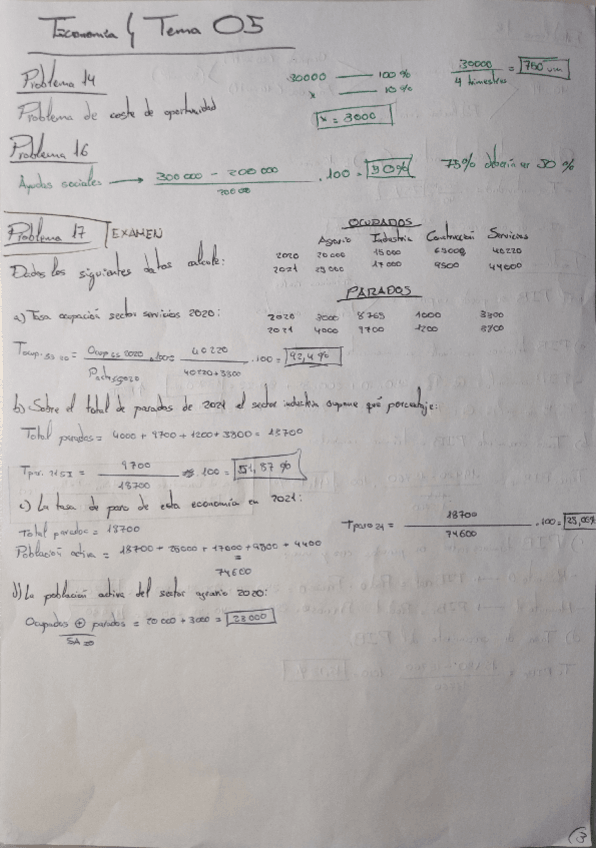 Economía 4 Tema 05
Problema 14
30000 — 100 %
x — 10 %
x = 3000
30000 / 4 trimestres = 750 um
Problema de coste de oportunidad
Problema 16
Ayudas sociales → 300 000 - 200 000 / 200 00 . 100 = 50% 75% deberían ser 50 %
Problema 17 EXAMEN
Dados los siguientes datos calcule:
OCUPADOS
Agrario Industria Construcción Servicios
2020 20 000 15000 40220
2021 17000 9500 44000
PARADOS
2020 3000 8765 1000 3300
2021 4000 9700 1200 3800
a) Tasa ocupación sector servicios 2020:
Tocup. SS 20 = Ocup SS 2020 / Pach SS 2020 . 100 = 40220 / 40220 + 3300 . 100 = 92,4 %
b) Sobre el total de parados de 2021 el sector industria supone qué porcentaje:
Total parados = 4000 + 9700 + 1200 + 3800 = 18700
= 9700 / 18700 . 100 = 51,87 %
c) La tasa de paro de esta economía en 2021:
Total parados = 18700
Población activa = 18700 + 25000 + 17000 + 9500 + 4400
=
74600
T paro 21 = 18700 / 74600 . 100 = 25,06%
d) La población activa del sector agrario 2020:
Ocupados + parados = 20 000 + 3000 = 23 000
SA 20
3